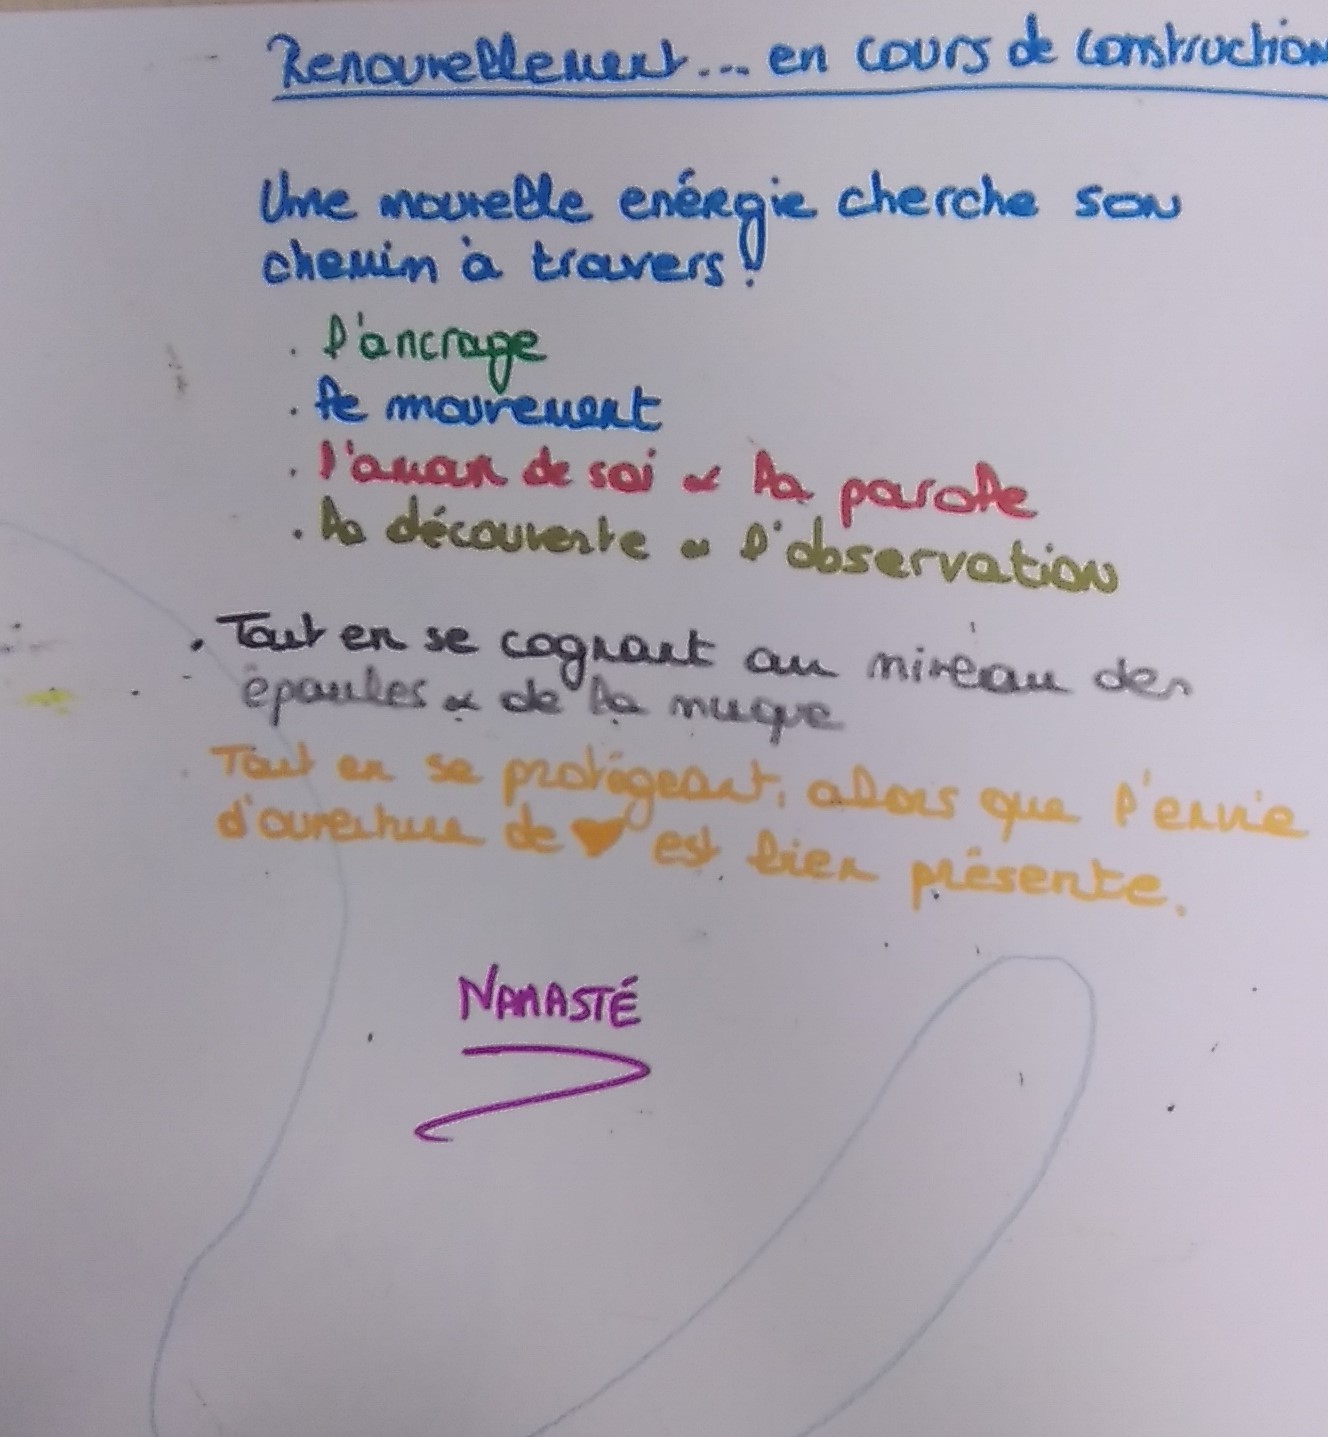 Renouvellement... en cours de construction
Une nouvelle enérgie cherche son
chemin à travers!
. l'ancrage
. le mouvement
. l'amour de soi & la parole
. la découverte & l'observation
. Tout en se cognant au niveau des
épaules & de la nuque
. Tout en se protégeant, alors que l'envie
d'ouverture de ♥ est bien présente.
NAMASTÉ